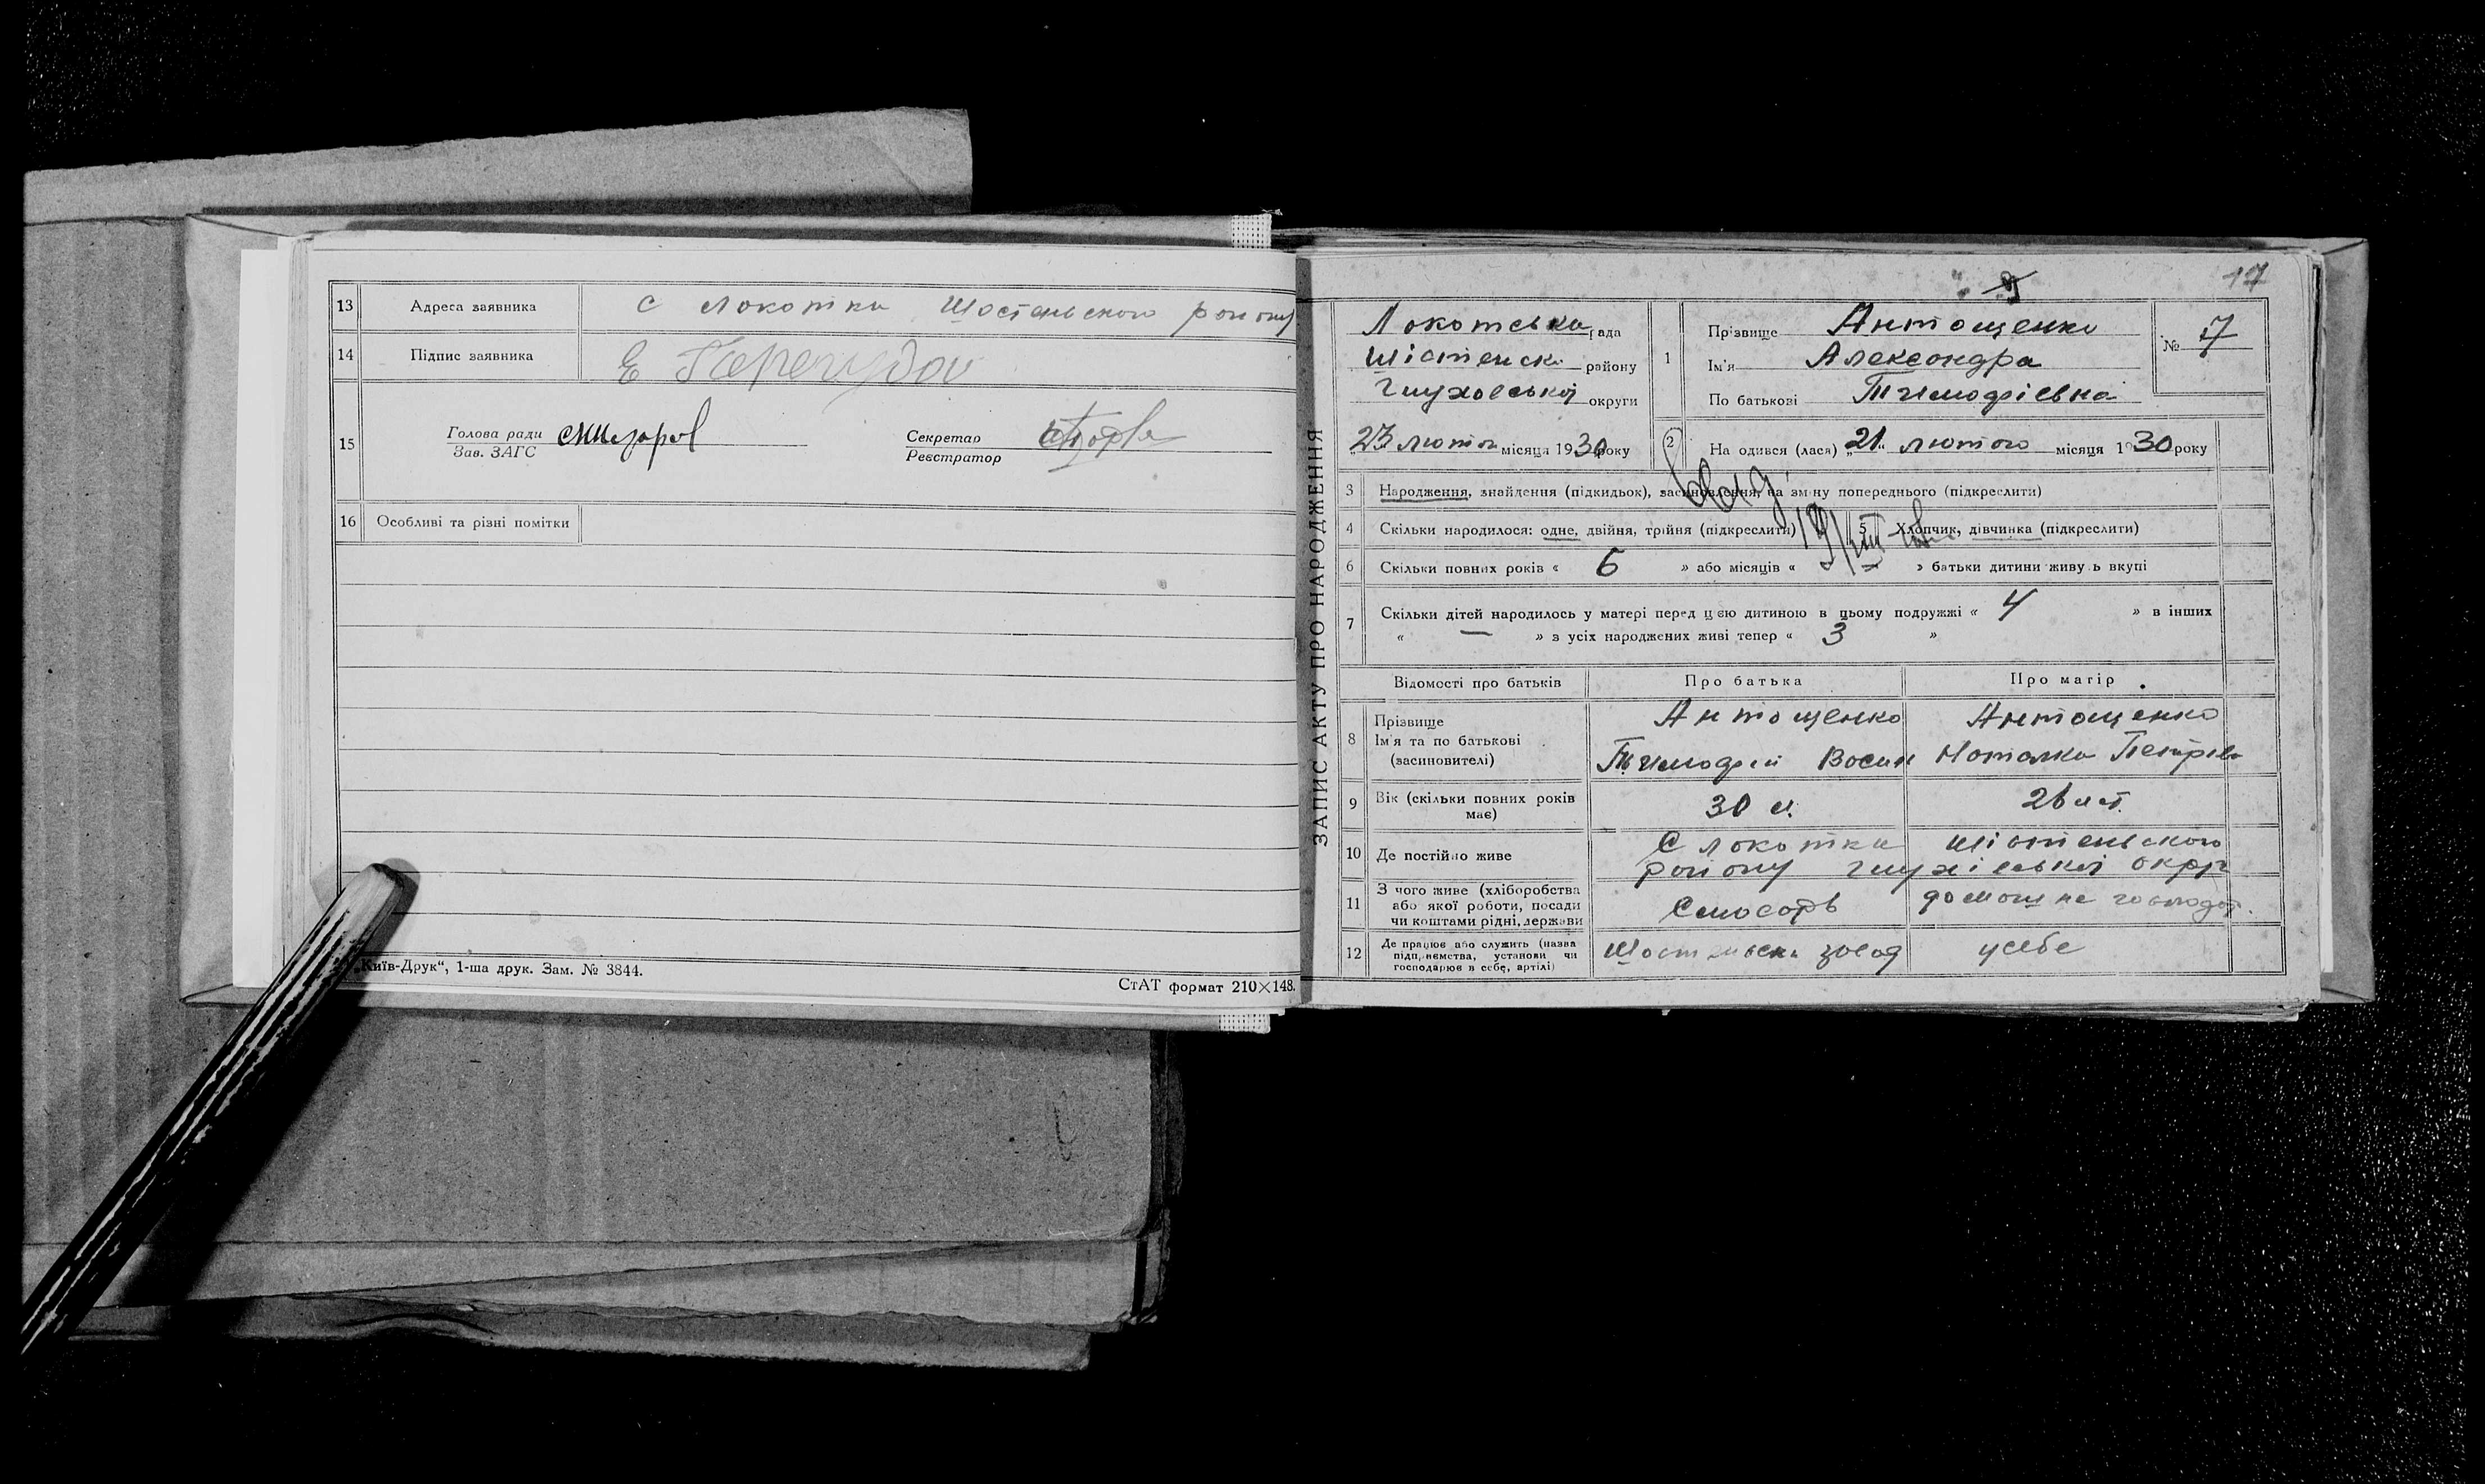 13 Адреса заявника с Локотки Шостеньского району
14 Підпис заявника Е
15 Голова ради
Зав. ЗАГС
Секретар
Реєстратор
16 Особливі та різні помітки
„Київ-Друк“, 1-ша друк. Зам. № 3844.
СтАТ формат 210×148.
17
ЗАПИС АКТУ ПРО НАРОДЖЕННЯ
Локотська рада
Шістенск. району
Глуховської округи
23 лютого місяця 1930 року
1 Прізвище Антощенко
Ім'я Александра
По батькові Тимофіевна
№ 7
2 На одився (лася) „21“ лютого місяця 1930 року
3 Народження, знайдення (підкидьок), засиновлення, на зміну попереднього (підкреслити)
4 Скільки народилося: одне, двійня, трійня (підкреслити)
5 Хлопчик, дівчинка (підкреслити)
6 Скільки повних років « 6 » або місяців « » батьки дитини живуть вкупі
7 Скільки дітей народилось у матері перед цією дитиною в цьому подружжі « 4 » в інших
« — » з усіх народжених живі тепер « 3 »
Відомості про батьків Про батька Про матір
8 Прізвище
Ім'я та по батькові
(засиновителі)
Антощенко
Тимофій Васил
Антощенко
Наталка Петрів
9 Вік (скільки повних років має) 30 л. 26 лет.
10 Де постійно живе С Локотки Шістеньского
району Глухівської окрр
11 З чого живе (хліборобства
або якої роботи, посади
чи коштами рідні, держави
Слюсарь
домашнє господар.
12 Де працює або служить (назва
підприємства, установи чи
господарює в себе, артілі)
Шостеньск. завод
у себе